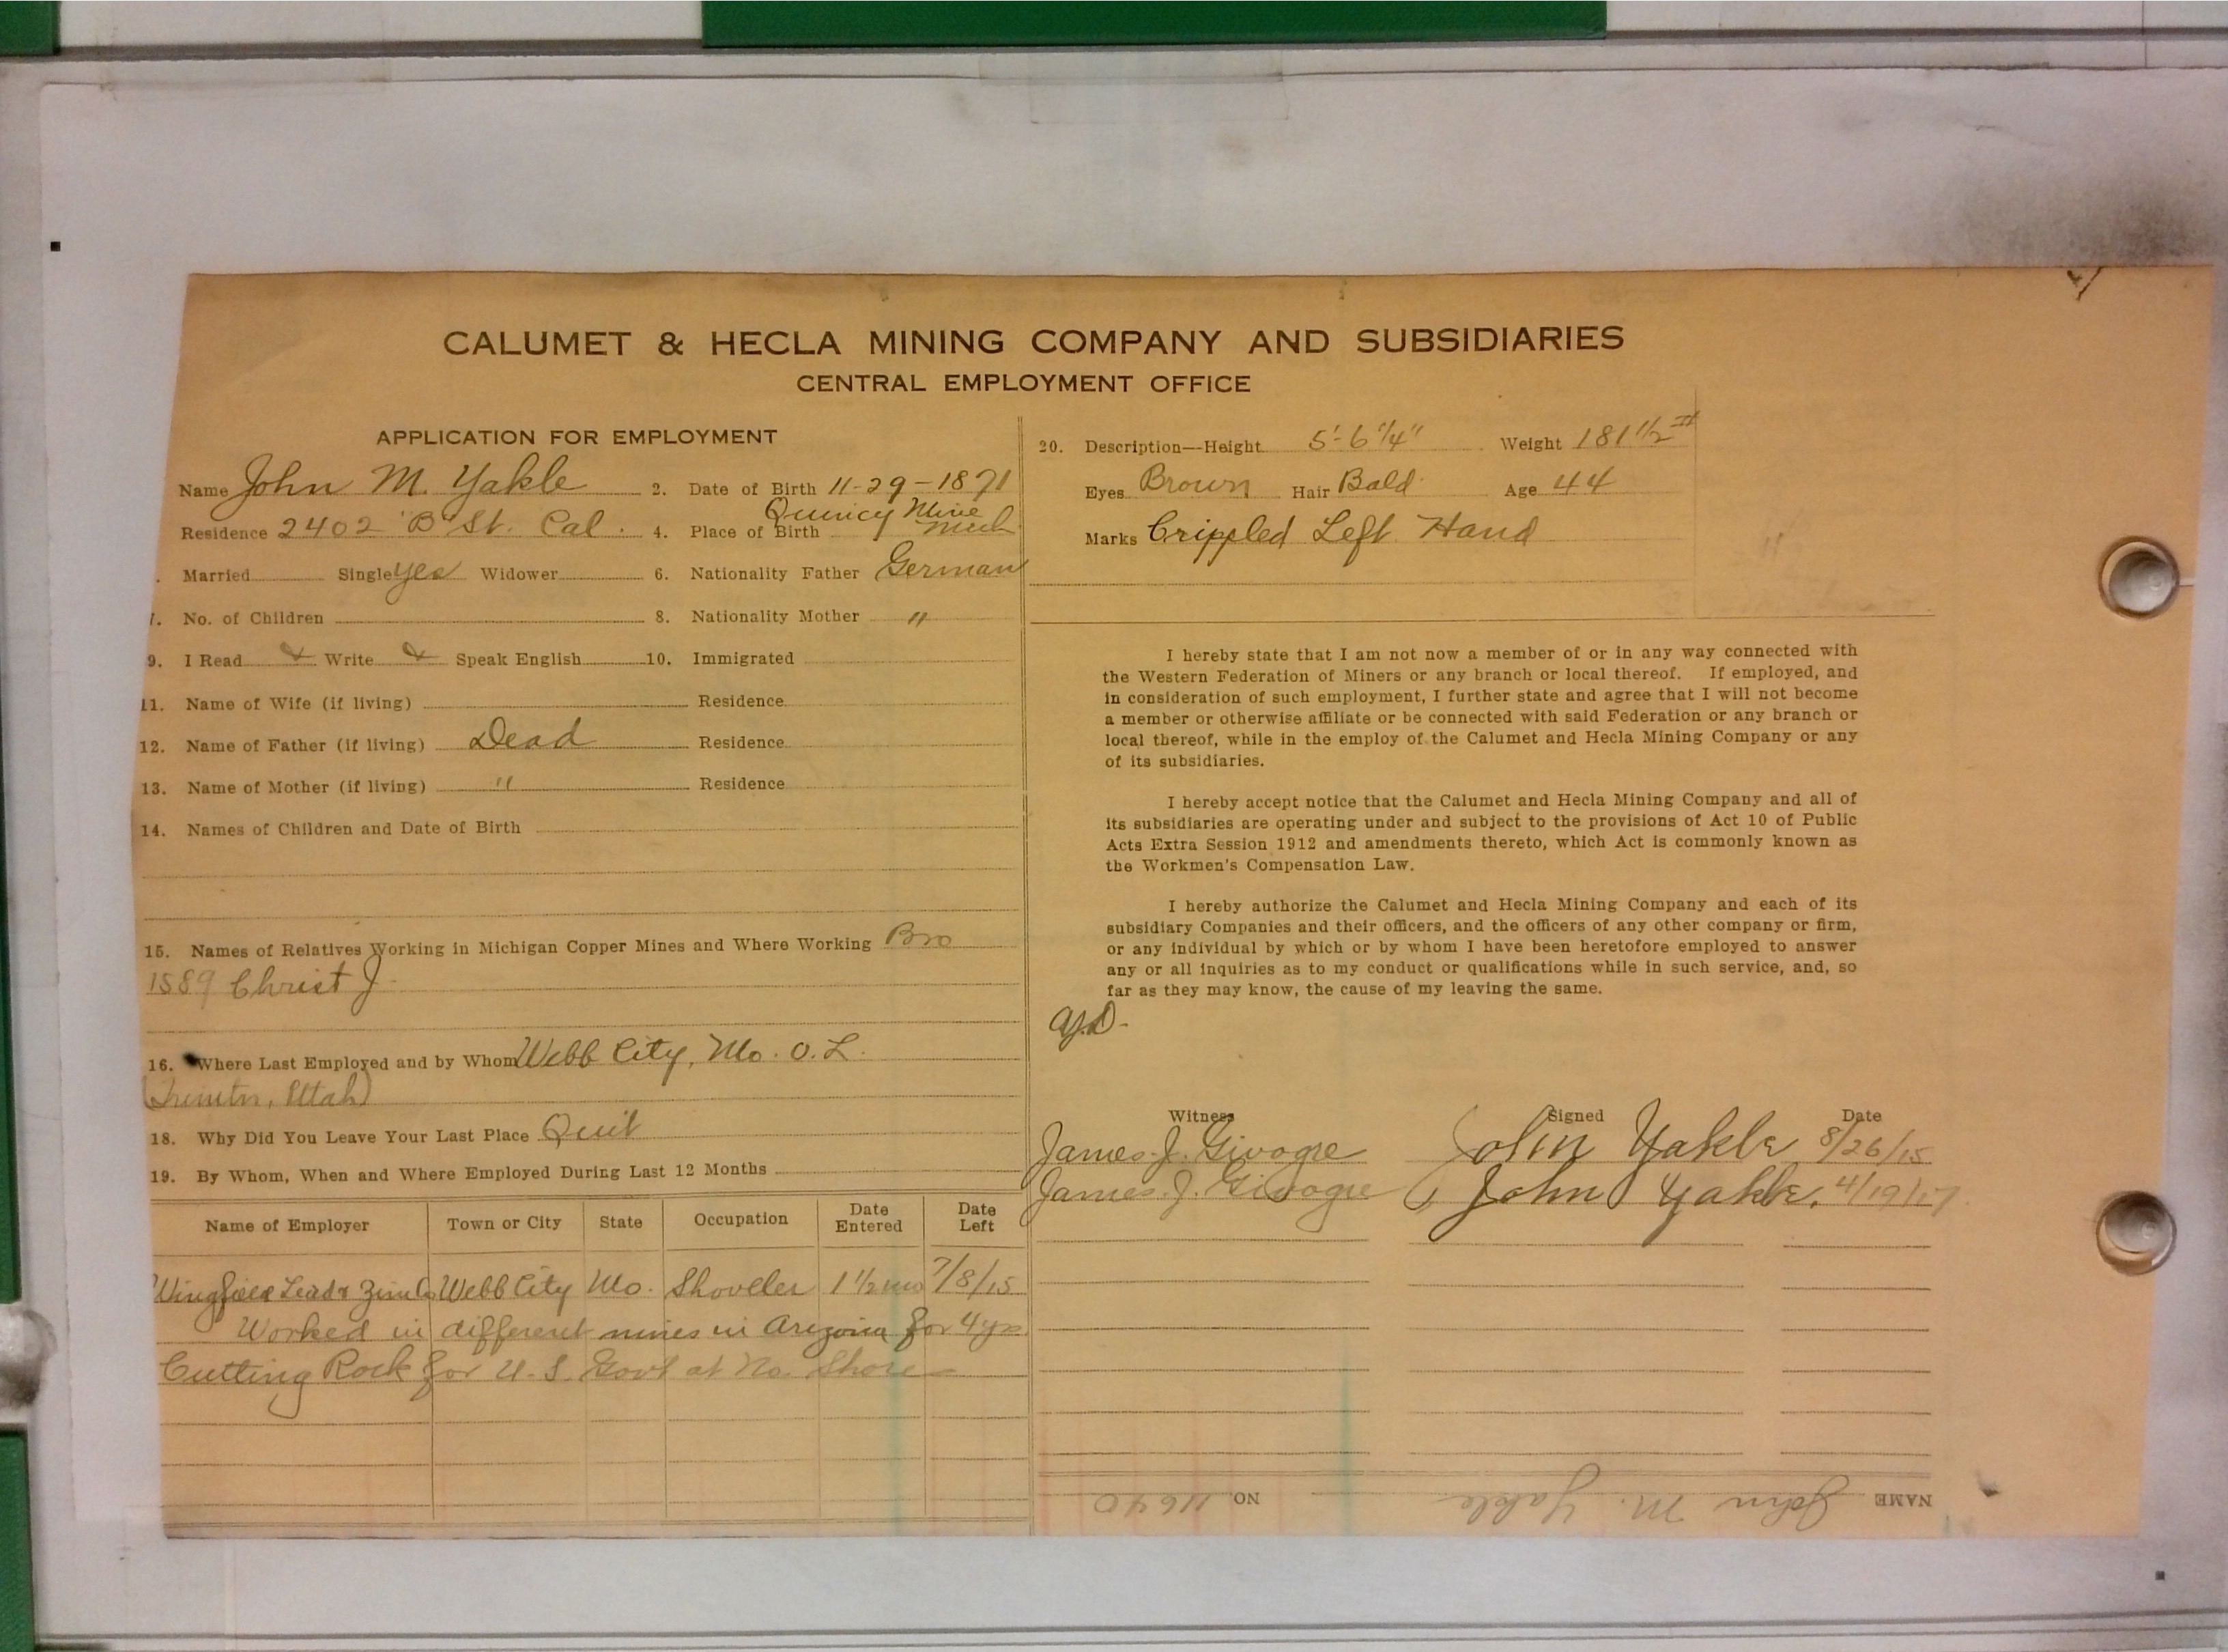 CALUMET & HECLA MINING COMPANY AND SUBSIDIARIES
CENTRAL EMPLOYMENT OFFICE
APPLICATION FOR EMPLOYMENT
Name John M. Yakle 2. Date of Birth 11-29-1871
Residence 2402 "B" St. Cal. 4. Place of Birth Quincy Mine Mich
Married Single yes Widower 6. Nationality Father German
7. No. of Children 8. Nationality Mother "
9. I Read & Write & Speak English 10. Immigrated
11. Name of Wife (if living) Residence
12. Name of Father (if living) Dead Residence
13. Name of Mother (if living) " Residence
14. Names of Children and Date of Birth
15. Names of Relatives Working in Michigan Copper Mines and Where Working Bro
1589 Christ J.
16. Where Last Employed and by Whom Webb City, Mo. O. L.
Utah)
18. Why Did You Leave Your Last Place Quit
19. By Whom, When and Where Employed During Last 12 Months
Name of Employer Town or City State Occupation Date Entered Date Left
Lead & Webb City Mo. Shoveler 1 1/2 mo 7/8/15
Worked in different mines in Arizona for 4 yrs
Cutting Rock for U.S. Govt at No. Shore
20. Description—Height 5'-6 1/4" Weight 181 1/2 #
Eyes Brown Hair Bald Age 44
Marks Crippled Left Hand
I hereby state that I am not now a member of or in any way connected with
the Western Federation of Miners or any branch or local thereof. If employed, and
in consideration of such employment, I further state and agree that I will not become
a member or otherwise affiliate or be connected with said Federation or any branch or
local thereof, while in the employ of the Calumet and Hecla Mining Company or any
of its subsidiaries.
I hereby accept notice that the Calumet and Hecla Mining Company and all of
its subsidiaries are operating under and subject to the provisions of Act 10 of Public
Acts Extra Session 1912 and amendments thereto, which Act is commonly known as
the Workmen's Compensation Law.
I hereby authorize the Calumet and Hecla Mining Company and each of its
subsidiary Companies and their officers, and the officers of any other company or firm,
or any individual by which or by whom I have been heretofore employed to answer
any or all inquiries as to my conduct or qualifications while in such service, and, so
far as they may know, the cause of my leaving the same.
Witness Signed Date
James J. John Yakle 8/26/15
James J. John Yakle. 4/19/17
NAME John M. Yakle NO. 11640